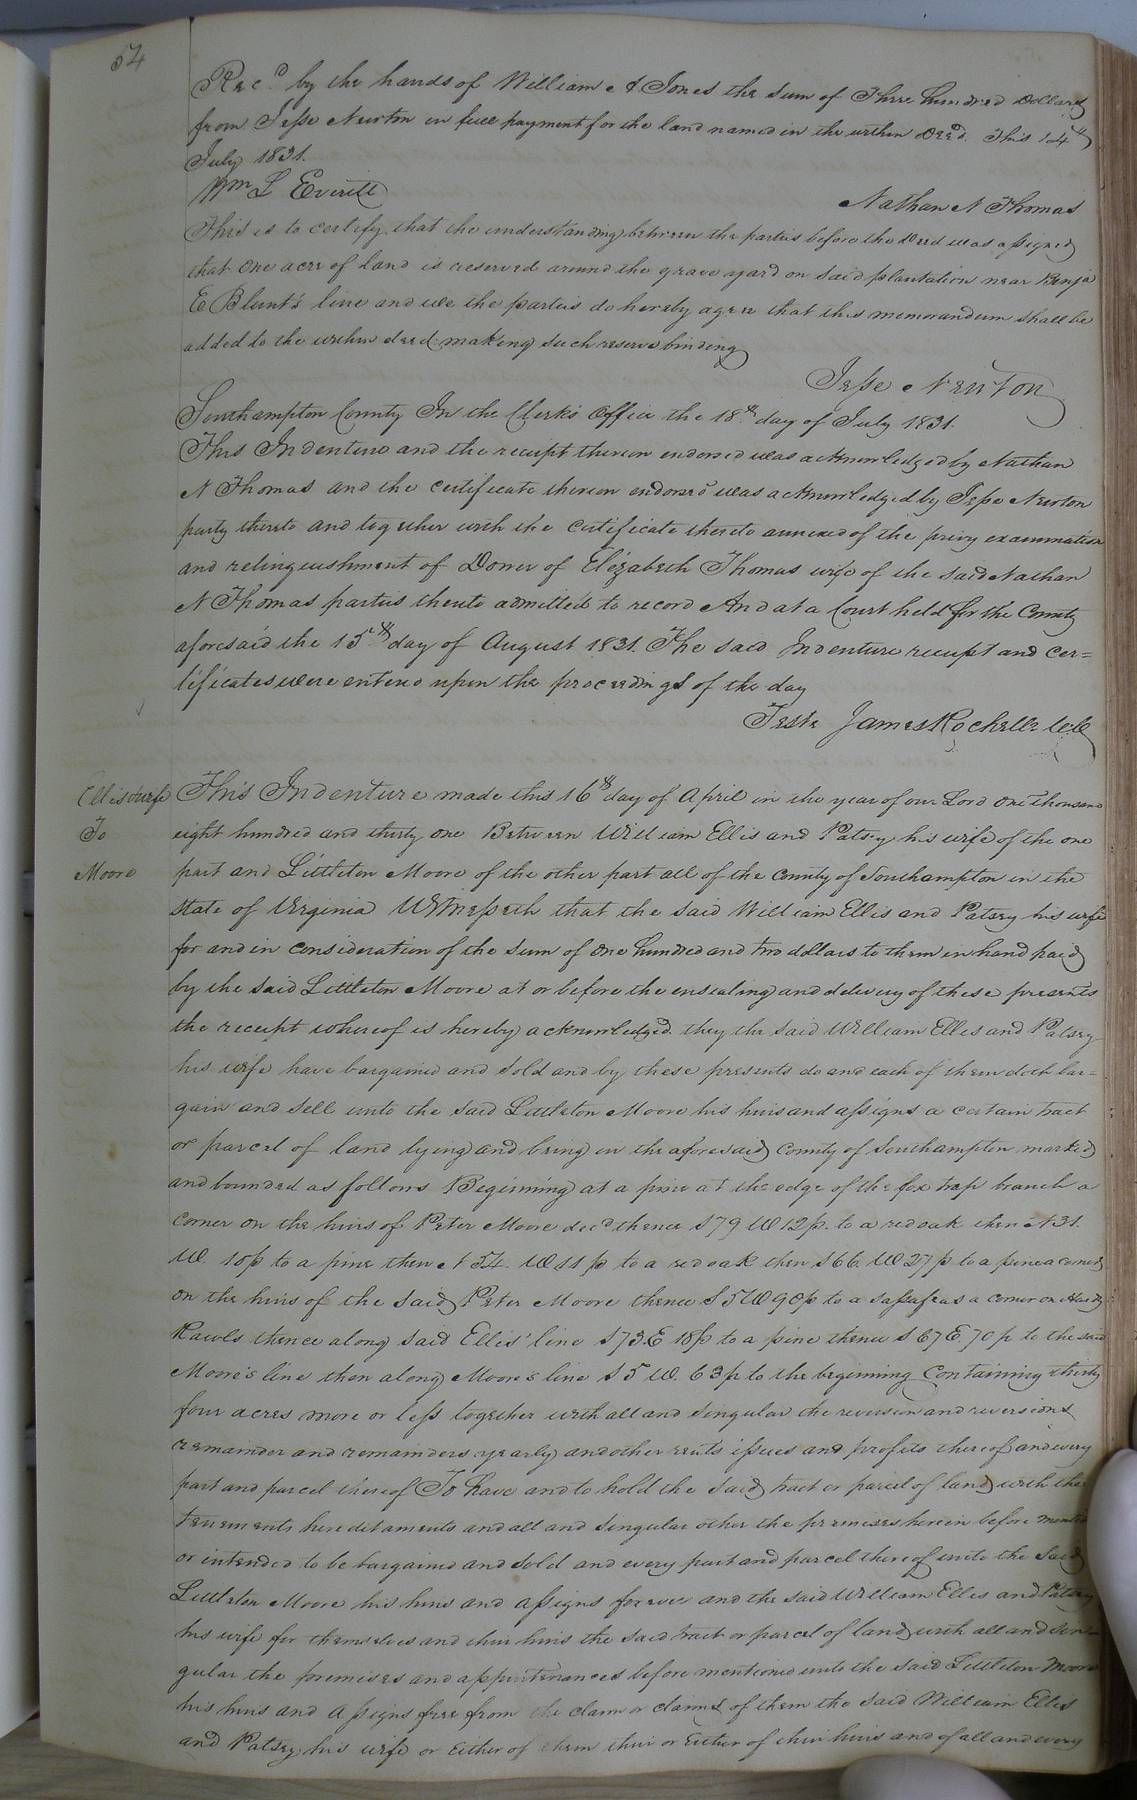 54
Rec.d by the hands of William A Jones the sum of Three hundred Dollars
from Jesse Newton in full payment for the land named in the within Deed. This 14th
July 1831.
Wm L Everitt
Nathan N Thomas
This is to certify that the understanding between the parties before the Deed was assigned
that One acre of land is reserved around the grave yard on said plantation near Benja
E Blunt's line and we the parties do hereby agree that this memorandum shall be
added to the within deed making such reserve binding
Jesse Newton
Southampton County In the Clerks Office the 18th day of July 1831.
This Indenture and the receipt thereon endorsed was acknowledged by Nathan
N Thomas and the certificate thereon endorsed was acknowledged by Jesse Newton
party thereto and together with the certificate thereto annexed of the privy examination
and relinquishment of Dower of Elizabeth Thomas wife of the said Nathan
N Thomas parties thereto admitted to record And at a Court held for the County
aforesaid the 15th day of August 1831. The said Indenture receipt and cer=
tificates were entered upon the proceedings of the day
Teste James Rochelle
Ellis & wife
To
Moore
This Indenture made this 16th day of April in the year of our Lord One Thousand
eight hundred and thirty one Between William Ellis and Patsey his wife of the one
part and Littleton Moore of the other part all of the County of Southampton in the
State of Virginia Witnesseth that the said William Ellis and Patsey his wife
for and in consideration of the sum of One hundred and two dollars to them in hand paid
by the said Littleton Moore at or before the ensealing and delivery of these presents
the receipt whereof is hereby acknowledged they the said William Ellis and Patsey
his wife have bargained and sold and by these presents do and each of them doth bar=
gain and sell unto the said Littleton Moore his heirs and assigns a certain tract
or parcel of land lying and being in the aforesaid County of Southampton marked
and bounded as follows Beginning at a pine at the edge of the fox trap branch a
corner on the heirs of Peter Moore decd thence S79 W12p. to a red oak then N31.
W. 10p to a pine then N 54. W11 p to a red oak then S66. W27p to a pine a corner
on the heirs of the said Peter Moore thence S5W90p to a sasafras a corner on
Rawls thence along said Ellis' line S73.E 18p to a pine thence S67E.70p to the said
Moore's line then along Moore's line S5 W. 63p to the beginning containing thirty
four acres more or less together with all and singular the reversion and reversions
remainder and remainders yearly and other rents issues and profits thereof and every
part and parcel thereof To have and to hold the said tract or parcel of land with the
tenements hereditaments and all and singular other the premises herein before
or intended to be bargained and sold and every part and parcel thereof unto the said
Littleton Moore his heirs and assigns forever and the said William Ellis and Patsey
his wife for themselves and their heirs the said tract or parcel of land with all and sin=
gular the premises and appurtenances before mentioned unto the said Littleton Moore
his heirs and assigns free from the claim or claims of them the said William Ellis
and Patsey his wife or Either of them their or Either of their heirs and of all and every